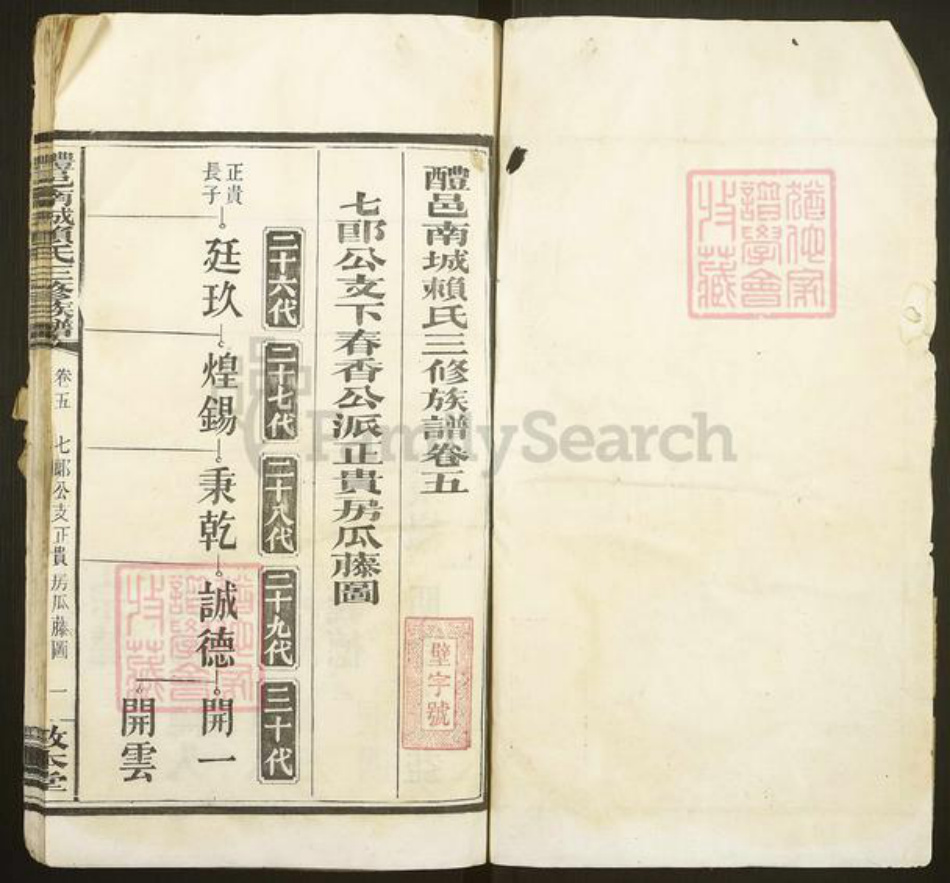 醴邑南城賴氏三修族譜卷五
七郎公支下春香公派正貴房瓜藤圖
二十六代
二十七代
二十八代
二十九代
三十代
正貴
長子
廷玖
煌錫
秉乾
誠德
開一
開雲
醴邑南城賴氏三修族譜
卷五
七郎公支正貴房瓜藤圖
一
敦本堂
壁字號
FamilySearch
譜學會
收藏